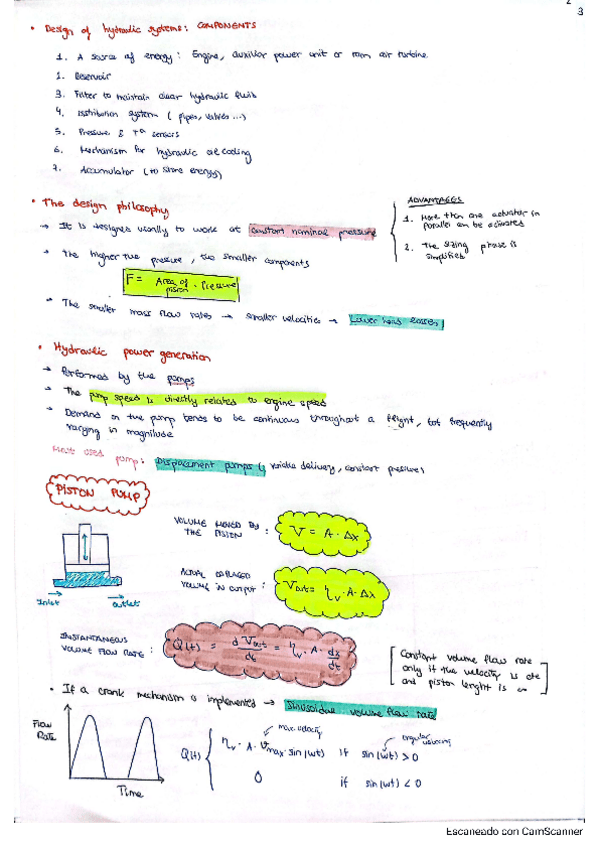 2
3
• Design of hydraulic systems: COMPONENTS
1. A source of energy: Engine, auxiliar power unit or ram air turbine.
1. Reservoir
3. Filter to maintain clear hydraulic fluid
4. Distribution system (pipes, valves ...)
5. Pressure & Tª sensors
6. Mechanism for hydraulic oil cooling
7. Accumulator (to store energy)
• The design philosophy
→ It is designed usually to work at constant nominal pressure
ADVANTAGES
1. More than one actuator in
parallel can be activated
2. The sizing phase is
simplified
→ The higher the pressure, the smaller components
F = Area of piston · Pressure
→ The smaller mass flow rates → smaller velocities → Lower head losses
• Hydraulic power generation
→ Performed by the pumps
→ The pump speed is directly related to engine speed
→ Demand on the pump tends to be continuous throughout a flight, but frequently
varying in magnitude
Most used pump: Displacement pumps (variable delivery, constant pressure)
PISTON PUMP
Inlet
outlet
VOLUME MOVED BY
THE PISTON :
V = A · Δx
ACTUAL
VOLUME IN OUTPUT :
Vout = ηv · A · Δx
INSTANTANEOUS
VOLUME FLOW RATE :
Q(t) = d Vout / dt = ηv · A · dx / dt
[Constant volume flow rate
only if the velocity is cte
and piston lenght is ∞]
• If a crank mechanism is implemented → Sinusoidal volume flow rate
FLOW
RATE
Time
max. velocity
angular velocity
Q(t) { ηv · A · Vmax · sin(wt) if sin(wt) > 0
0 if sin(wt) < 0
Escaneado con CamScanner